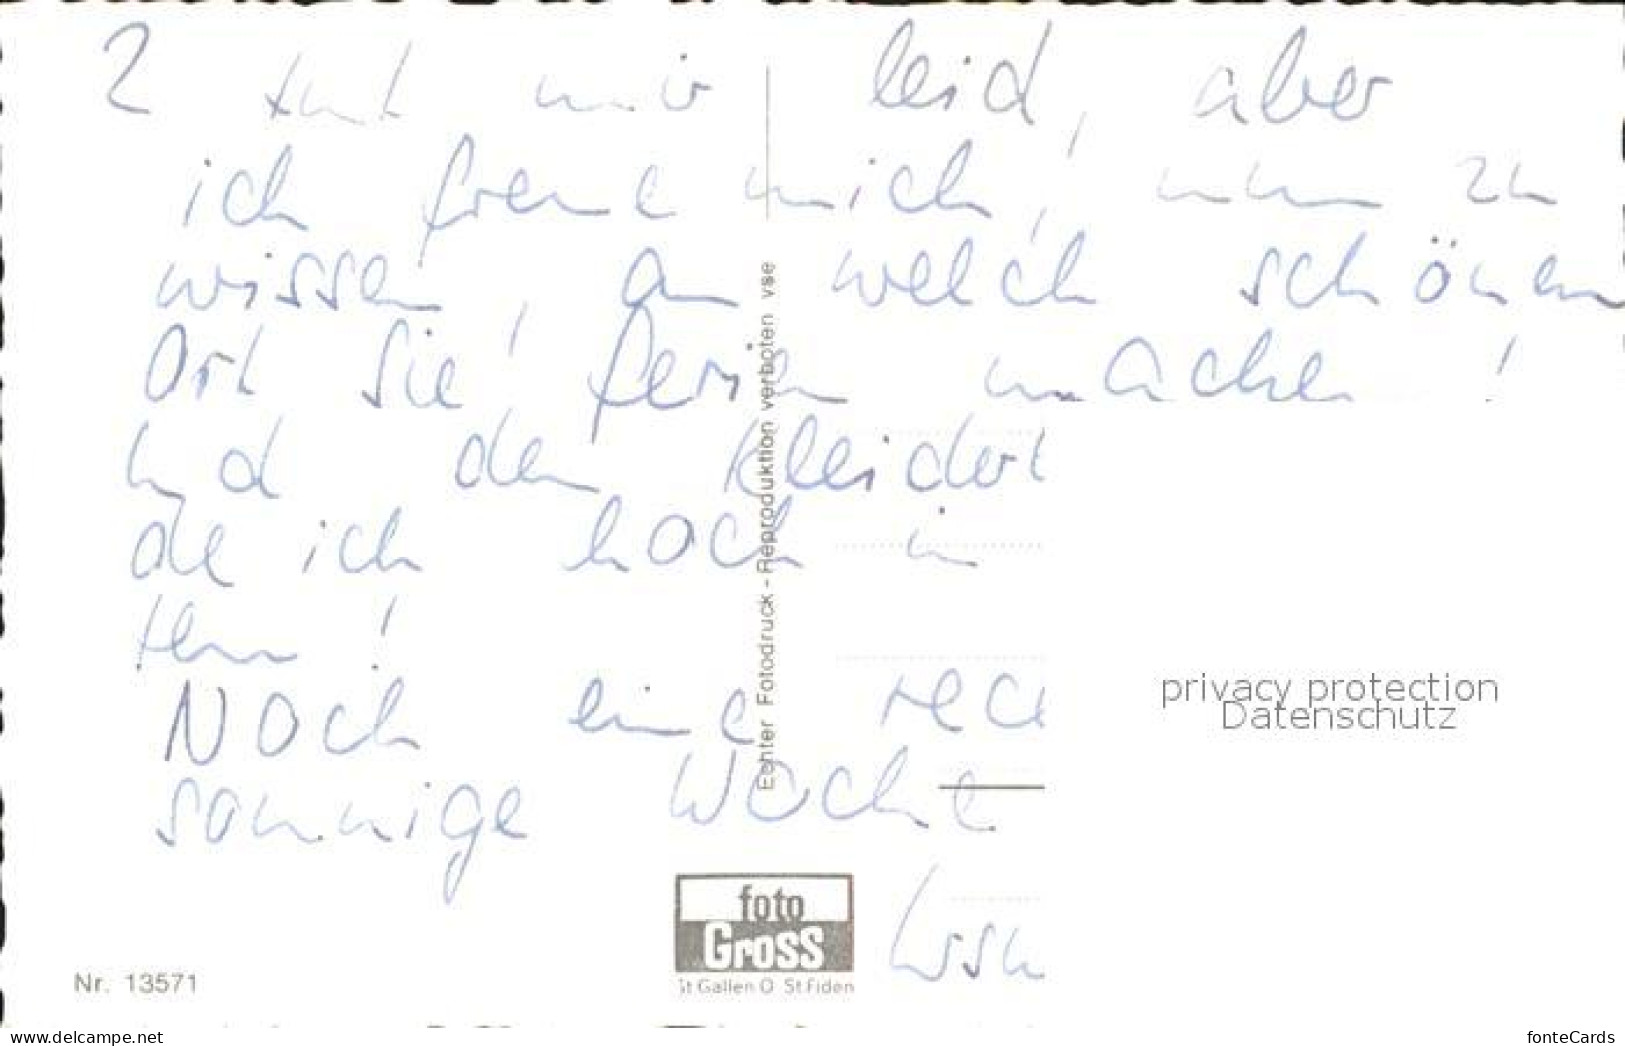 2 tut mir leid, aber
ich freue mich, nun zu
wissen, an welch schönen
Ort Sie Ferien machen!
Und den Kleider
ich noch in
ten!
Noch eine rec
sonnige Woche
Echter Fotodruck - Reproduktion verboten vse
foto
Gross
St Gallen O St Fiden
Nr. 13571
privacy protection
Datenschutz
www.delcampe.net
fonteCards